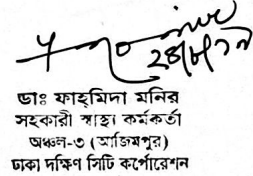 ডাঃ ফাহ্‌মিদা মনির
সহকারী স্বাস্থ্য কর্মকর্তা
অঞ্চল-৩ (আজিমপুর)
ঢাকা দক্ষিণ সিটি কর্পোরেশন